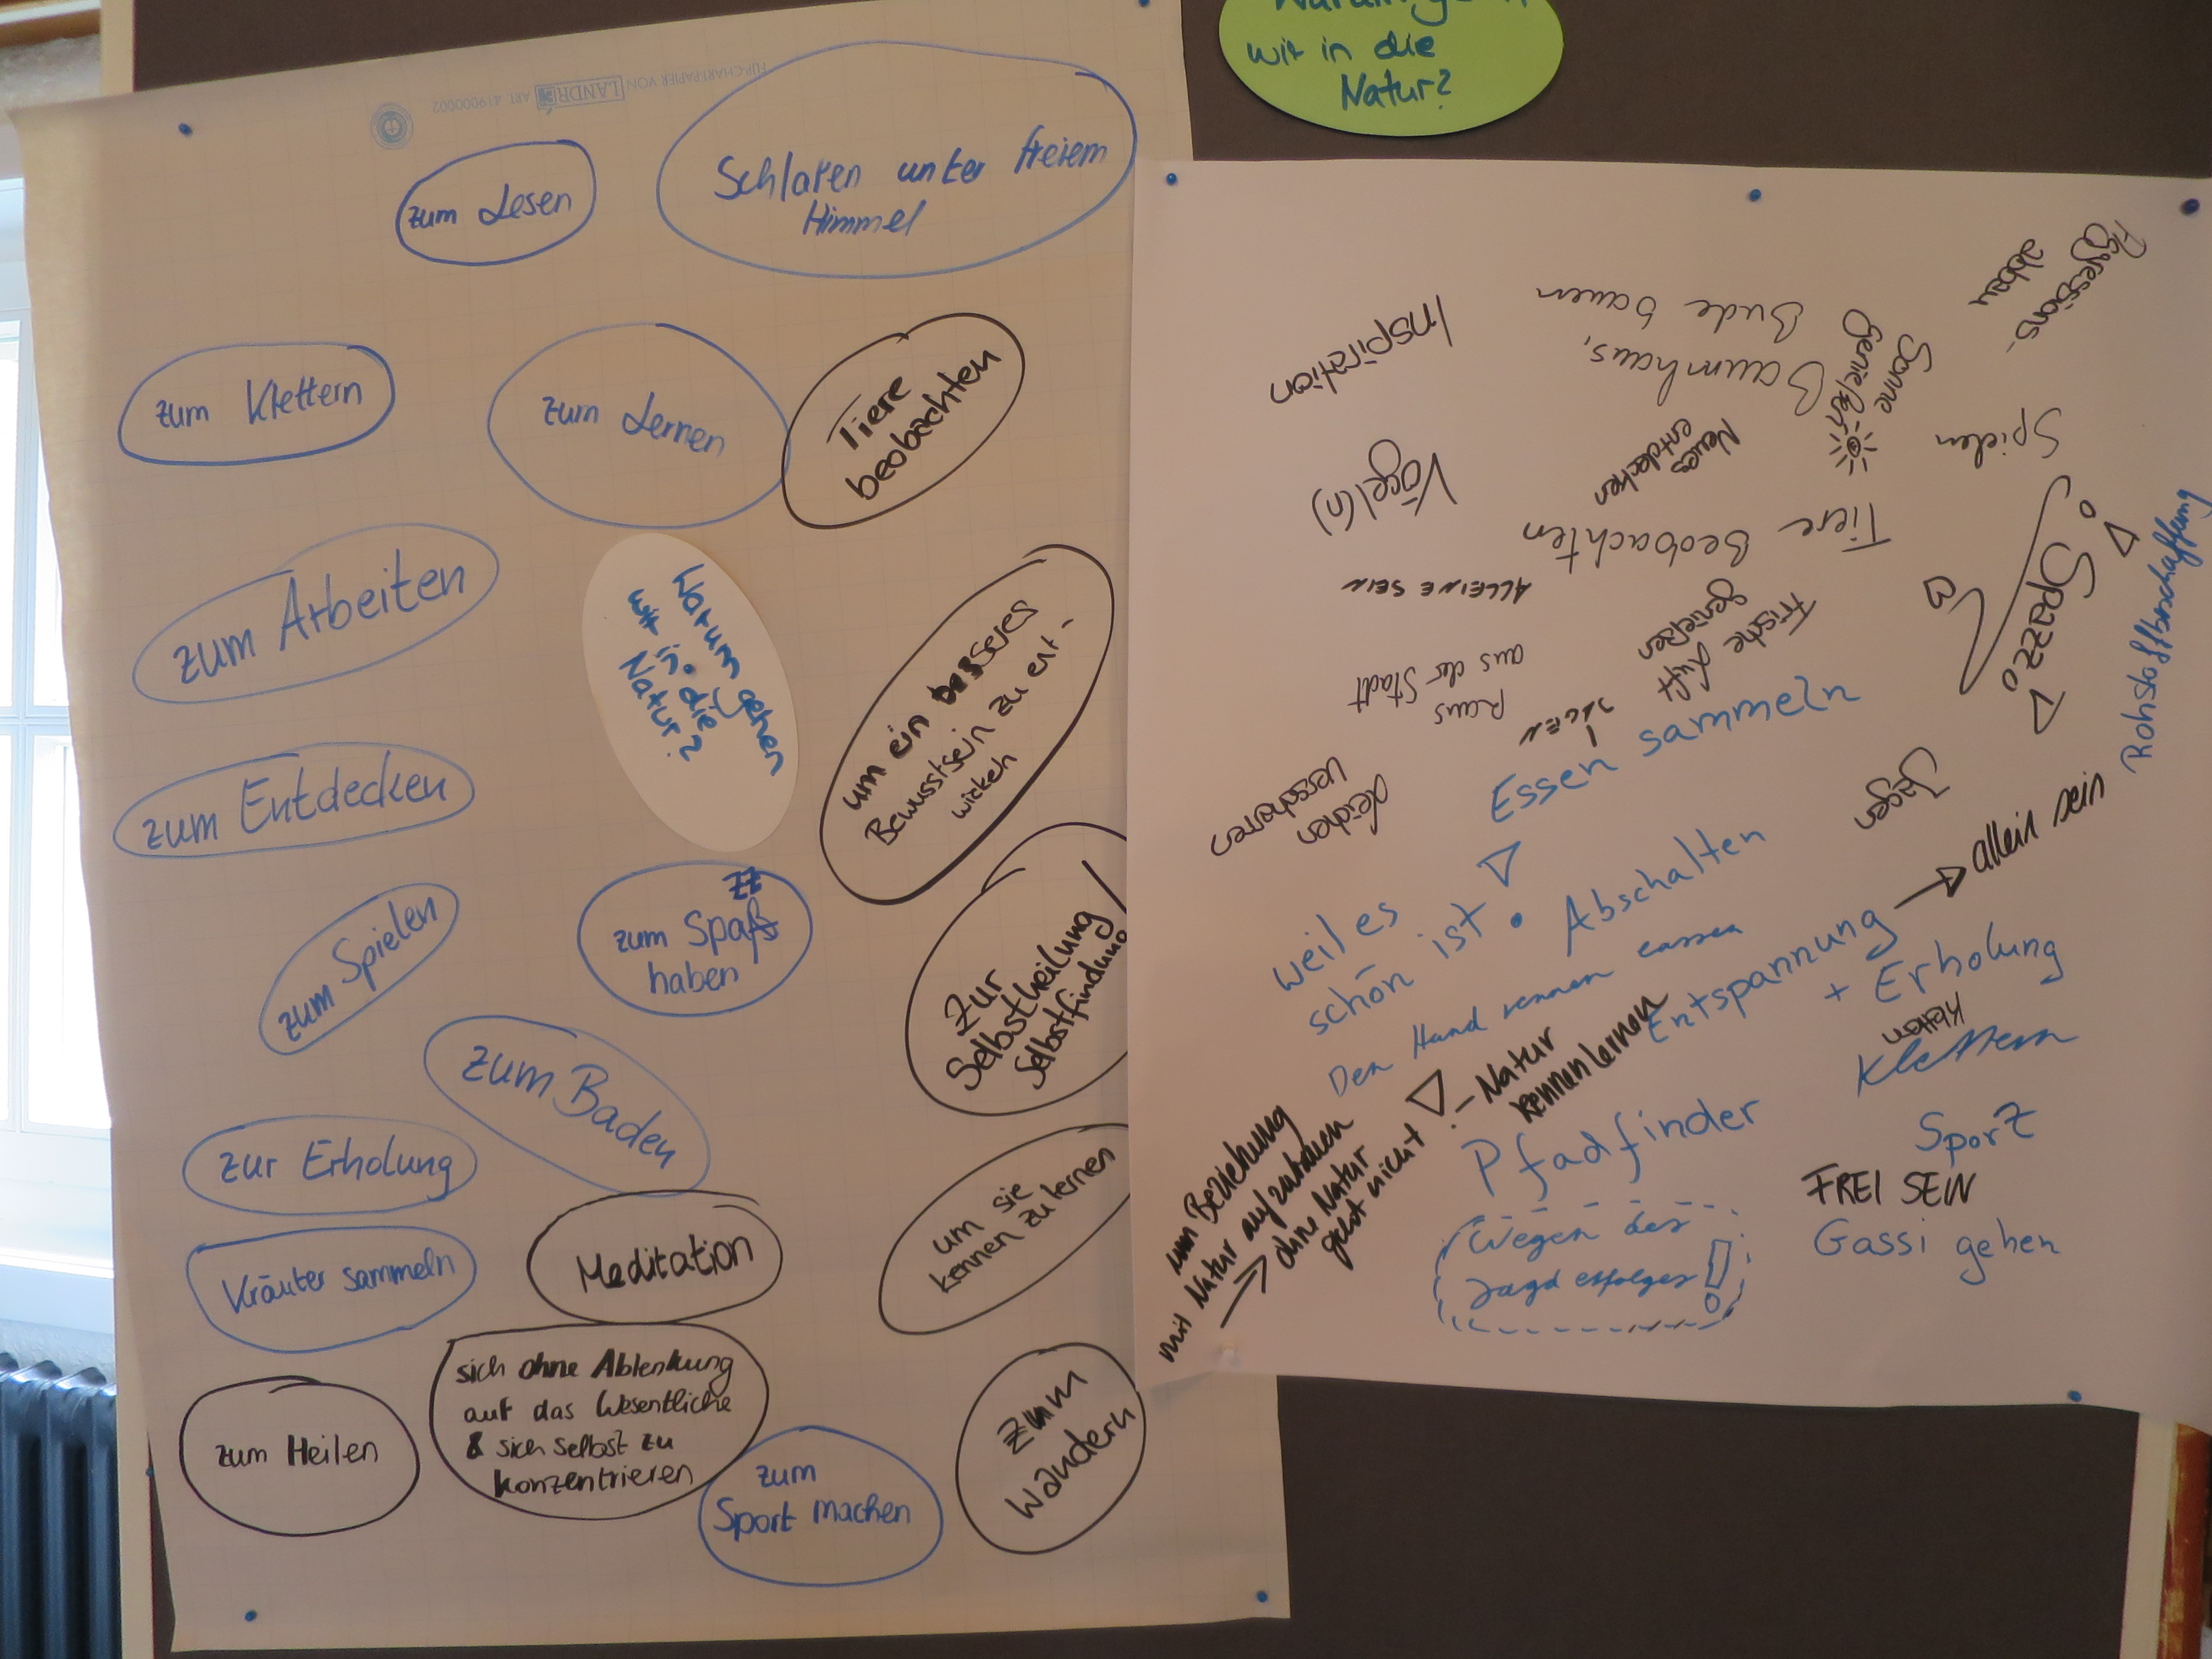 wir in die
Natur?
FLIPCHART-PAPIER VON LANDRÉ ART. 419000002
zum Lesen
Schlafen unter freiem
Himmel
zum Klettern
zum Lernen
Tiere
beobachten
zum Arbeiten
Warum gehen
wir in die
Natur?
um ein besseres
Bewusstsein zu ent-
wickeln
zum Entdecken
zum Spielen
zum Spaß
zz
haben
zur
Selbstheilung
Selbstfindung
zum Baden
zur Erholung
um sie
kennen zu lernen
Kräuter sammeln
Meditation
sich ohne Ablenkung
auf das Wesentliche
& sich selbst zu
konzentrieren
zum Heilen
zum
Sport machen
zum
Wandern
Aggressions-
abbau
Inspiration
Baumhaus,
Bude bauen
Sonne
genießen
Spielen
Neues
entdecken
Vögel(n)
Tiere Beobachten
ALLEINE SEIN
Spazzo
Rohstoffbeschaffung
Frische Luft
genießen
Raus
aus der Stadt
Essen sammeln
Leichen
verscharren
Jagen
weil es
schön ist!
Abschalten
allein sein
Den Hund rennen lassen
Entspannung
+ Erholung
Klettern
Klettern
- Natur
kennenlernen
um Beziehung
mit Natur aufzubauen
→ ohne Natur
geht nicht!
Pfadfinder
Sport
FREI SEIN
Gassi gehen
Wegen des
Jagd erfolges!